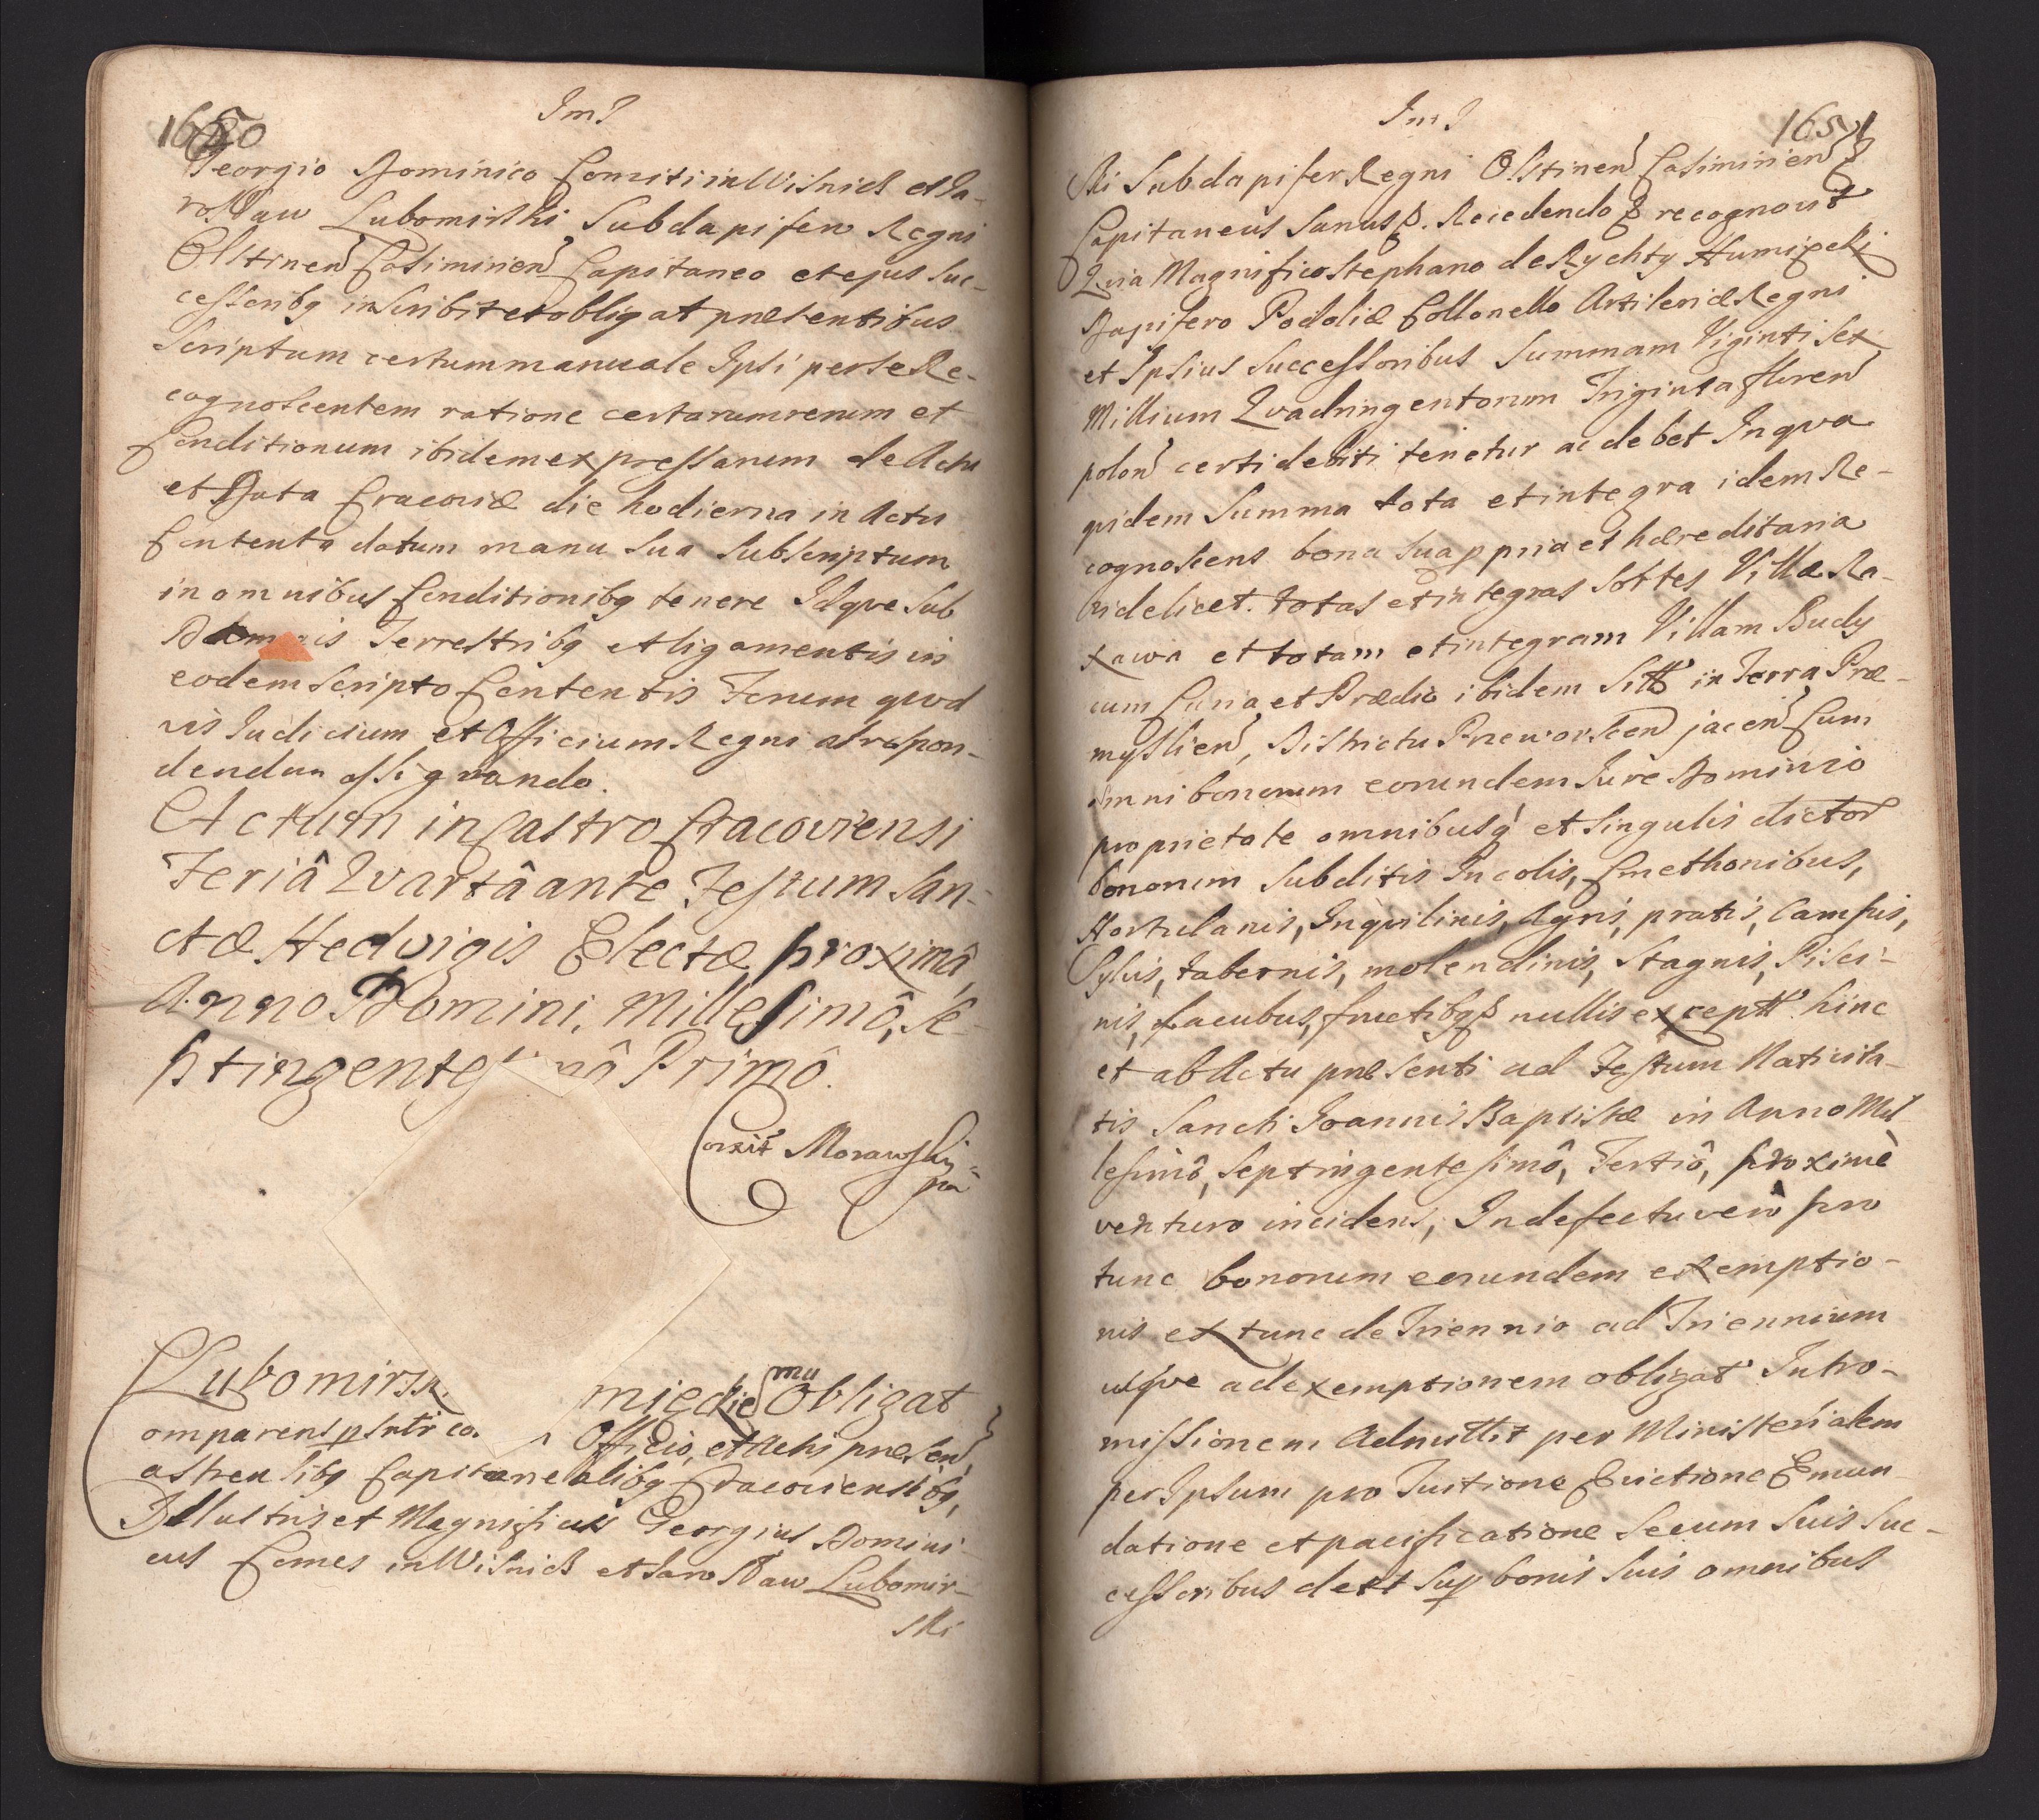 1650
Georgio Dominico Comiti in Wisnicz et Ja-
roslaw Lubomirski Subdapifero Regni
Olstinen Casimirien Capitaneo et ejus Suc-
cessoribq inscribit et obligat præsentibus
Scriptum certum manuale Ipsi per se Re-
cognoscentem ratione certarum rerum et
Conditionum ibidem expressarum de Actu
et Data Cracoviæ die hodierna in Actu
Contenta datum manu Sua Subscriptum
in omnibus Conditionibq tenere Idqve Sub
Terrestribq et ligamentis in
eodem Scripto Contentis Forum qvod
vis Judicium et Officium Regni ad respon-
dendum assignando.
Actum in Castro Cracoviensi
Feriâ Qvartâ ante Festum San-
ctæ Hedvigis Electæ proximâ,
Anno Domini, Millesimô, Se-
ptingente mô Primô.
Morawski
Lubomirsk mu Obligat
omparens co. Officio, et Actis præsen
astrensibq Capitanealibq Cracoviensibq,
Illustris et Magnificus Georgius Domini-
cus Comes in Wisnicz et Jaroslaw Lubomir-
ski
1651
ski Subdapifer Regni Olstinen Casimirien &
Capitaneus Sanus &. Recedendo & recognovit
Qvia Magnifico Stephano de Rychty Humięcki
Dapifero Podoliæ Collonello Artileriæ Regni
et Ipsius Successoribus Summam Viginti Sex
Millium Qvadringentorum Triginta floren
polon certi debiti tenetur ac debet In qva
qvidem Summa tota et integra idem Re-
cognoscens bona sua ppria et hæreditaria
videlicet. totas et integras Sortes Villæ Ro-
xawa et totam et integram Villam Budy
cum Curia et Prædio ibidem Sitt in Terra Præ-
myslien, Districtu Przeworscen jacen Cum
omni bonorum eorundem Jure Dominio
proprietate omnibusq et Singulis dictor
bonorum Subditis Incolis, Cmethonibus,
Hortulanis, Inqvilinis, Agris, pratis, Campis,
Sylvis, tabernis, molendinis, Stagnis, Pisci-
nis, Lacubus, fructibq & nullis exceptt hinc
et ab Actu præsenti ad Festum Nativita-
tis Sancti Joannis Baptistæ in Anno Mil
lesimô, Septingentesimô, Tertiô, proximè
venturo incidens, In defectu verò pro
tunc bonorum eorundem exemptio-
nis ex tunc de Triennio ad Triennium
usqve ad exemptionem obligat Intro-
missionem Admittit per Ministerialem
per Ipsum pro Tuitione Evictione Emun
datione et pacificatione Secum Suis Suc-
cessoribus de et Sup bonis Suis omnibus